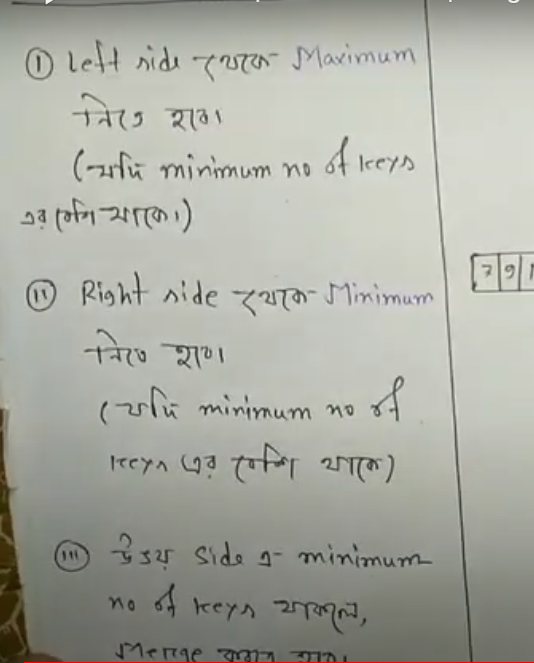 ① Left side থেকে Maximum
নিতে হবে।
(যদি minimum no of keys
এর বেশি থাকে।)
② Right side থেকে Minimum
নিতে হবে।
(যদি minimum no of
keys এর বেশি থাকে)
7 9
③ উভয় side এ minimum
no of keys থাকলে,
Merge করতে হবে।